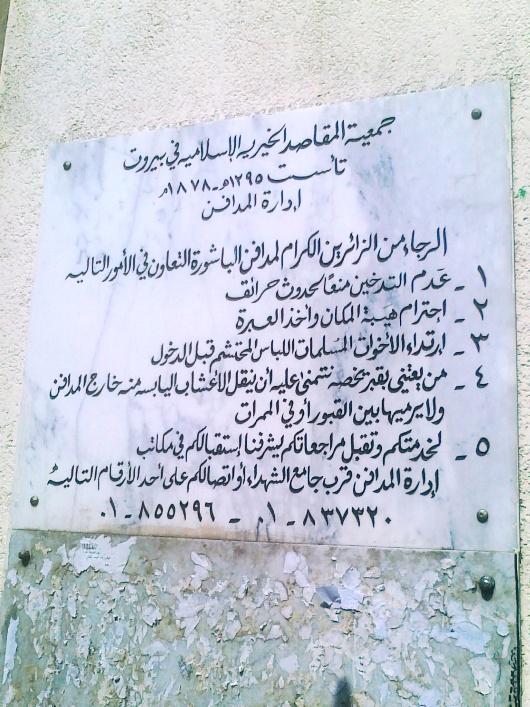 جمعية المقاصد الخيرية الإسلامية في بيروت
تأسست ١٢٩٥هـ - ١٨٧٨م
إدارة المدافن
الرجاء من الزائرين الكرام لمدافن الباشورة التعاون في الأمور التالية
١ - عدم التدخين منعًا لحدوث حرائق
٢ - احترام هيبة المكان وأخذ العبرة
٣ - ارتداء الأخوات المسلمات اللباس المحتشم قبل الدخول
٤ - من يعتني بقبر يخصه نتمنى عليه أن ينقل الأعشاب اليابسة منه خارج المدافن
ولا يرميها بين القبور أو في الممرات
٥ - لخدمتكم وتقبل مراجعاتكم يشرفنا إستقبالكم في مكاتب
إدارة المدافن قرب جامع الشهداء أو اتصالكم على أحد الأرقام التالية
٠١-٨٥٥٢٩٦ - ٠١-٨٣٧٣٢٠